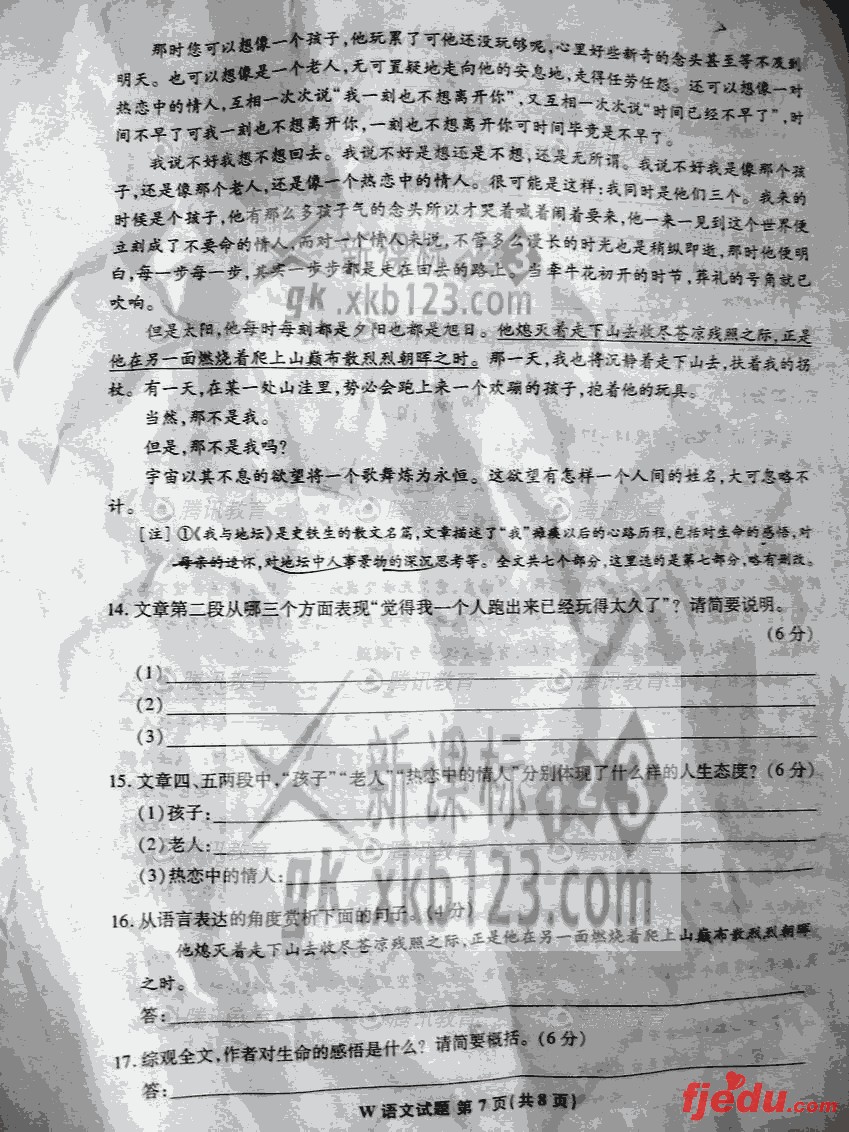 那时您可以想像一个孩子，他玩累了可他还没玩够呢，心里好些新奇的念头甚至等不及到
明天。也可以想像是一个老人，无可置疑地走向他的安息地，走得任劳任怨。还可以想像一对
热恋中的情人，互相一次次说“我一刻也不想离开你”，又互相一次次说“时间已经不早了”，时
间不早了可我一刻也不想离开你，一刻也不想离开你可时间毕竟是不早了。
我说不好我想不想回去。我说不好是想还是不想，还是无所谓。我说不好我是像那个孩
子，还是像那个老人，还是像一个热恋中的情人。很可能是这样：我同时是他们三个。我来的
时候是个孩子，他有那么多孩子气的念头所以才哭着喊着闹着要来，他一来一见到这个世界便
立刻成了不要命的情人，而对一个情人来说，不管多么漫长的时光也是稍纵即逝，那时他便明
白，每一步每一步，其实一步步都是走在回去的路上。当牵牛花初开的时节，葬礼的号角就已
吹响。
但是太阳，他每时每刻都是夕阳也都是旭日。他熄灭着走下山去收尽苍凉残照之际，正是
他在另一面燃烧着爬上山巅布散烈烈朝晖之时。那一天，我也将沉静着走下山去，扶着我的拐
杖。有一天，在某一处山洼里，势必会跑上来一个欢蹦的孩子，抱着他的玩具。
当然，那不是我。
但是，那不是我吗？
宇宙以其不息的欲望将一个歌舞炼为永恒。这欲望有怎样一个人间的姓名，大可忽略不
计。
[注]①《我与地坛》是史铁生的散文名篇，文章描述了“我”瘫痪以后的心路历程，包括对生命的感悟，对
母亲的追怀，对地坛中人事景物的深沉思考等。全文共七个部分，这里选的是第七部分，略有删改。
14. 文章第二段从哪三个方面表现“觉得我一个人跑出来已经玩得太久了”？请简要说明。
（6分）
（1）
（2）
（3）
15. 文章四、五两段中，“孩子”“老人”“热恋中的情人”分别体现了什么样的人生态度？（6分）
（1）孩子：
（2）老人：
（3）热恋中的情人：
16. 从语言表达的角度赏析下面的句子。（4分）
他熄灭着走下山去收尽苍凉残照之际，正是他在另一面燃烧着爬上山巅布散烈烈朝晖
之时。
答：
17. 综观全文，作者对生命的感悟是什么？请简要概括。（6分）
答：
W 语文试题 第7页（共8页）
新课标123
gk.xkb123.com
新课标123
gk.xkb123.com
腾讯教育
腾讯教育
腾讯教育
腾讯教育
腾讯教育
fjedu.com